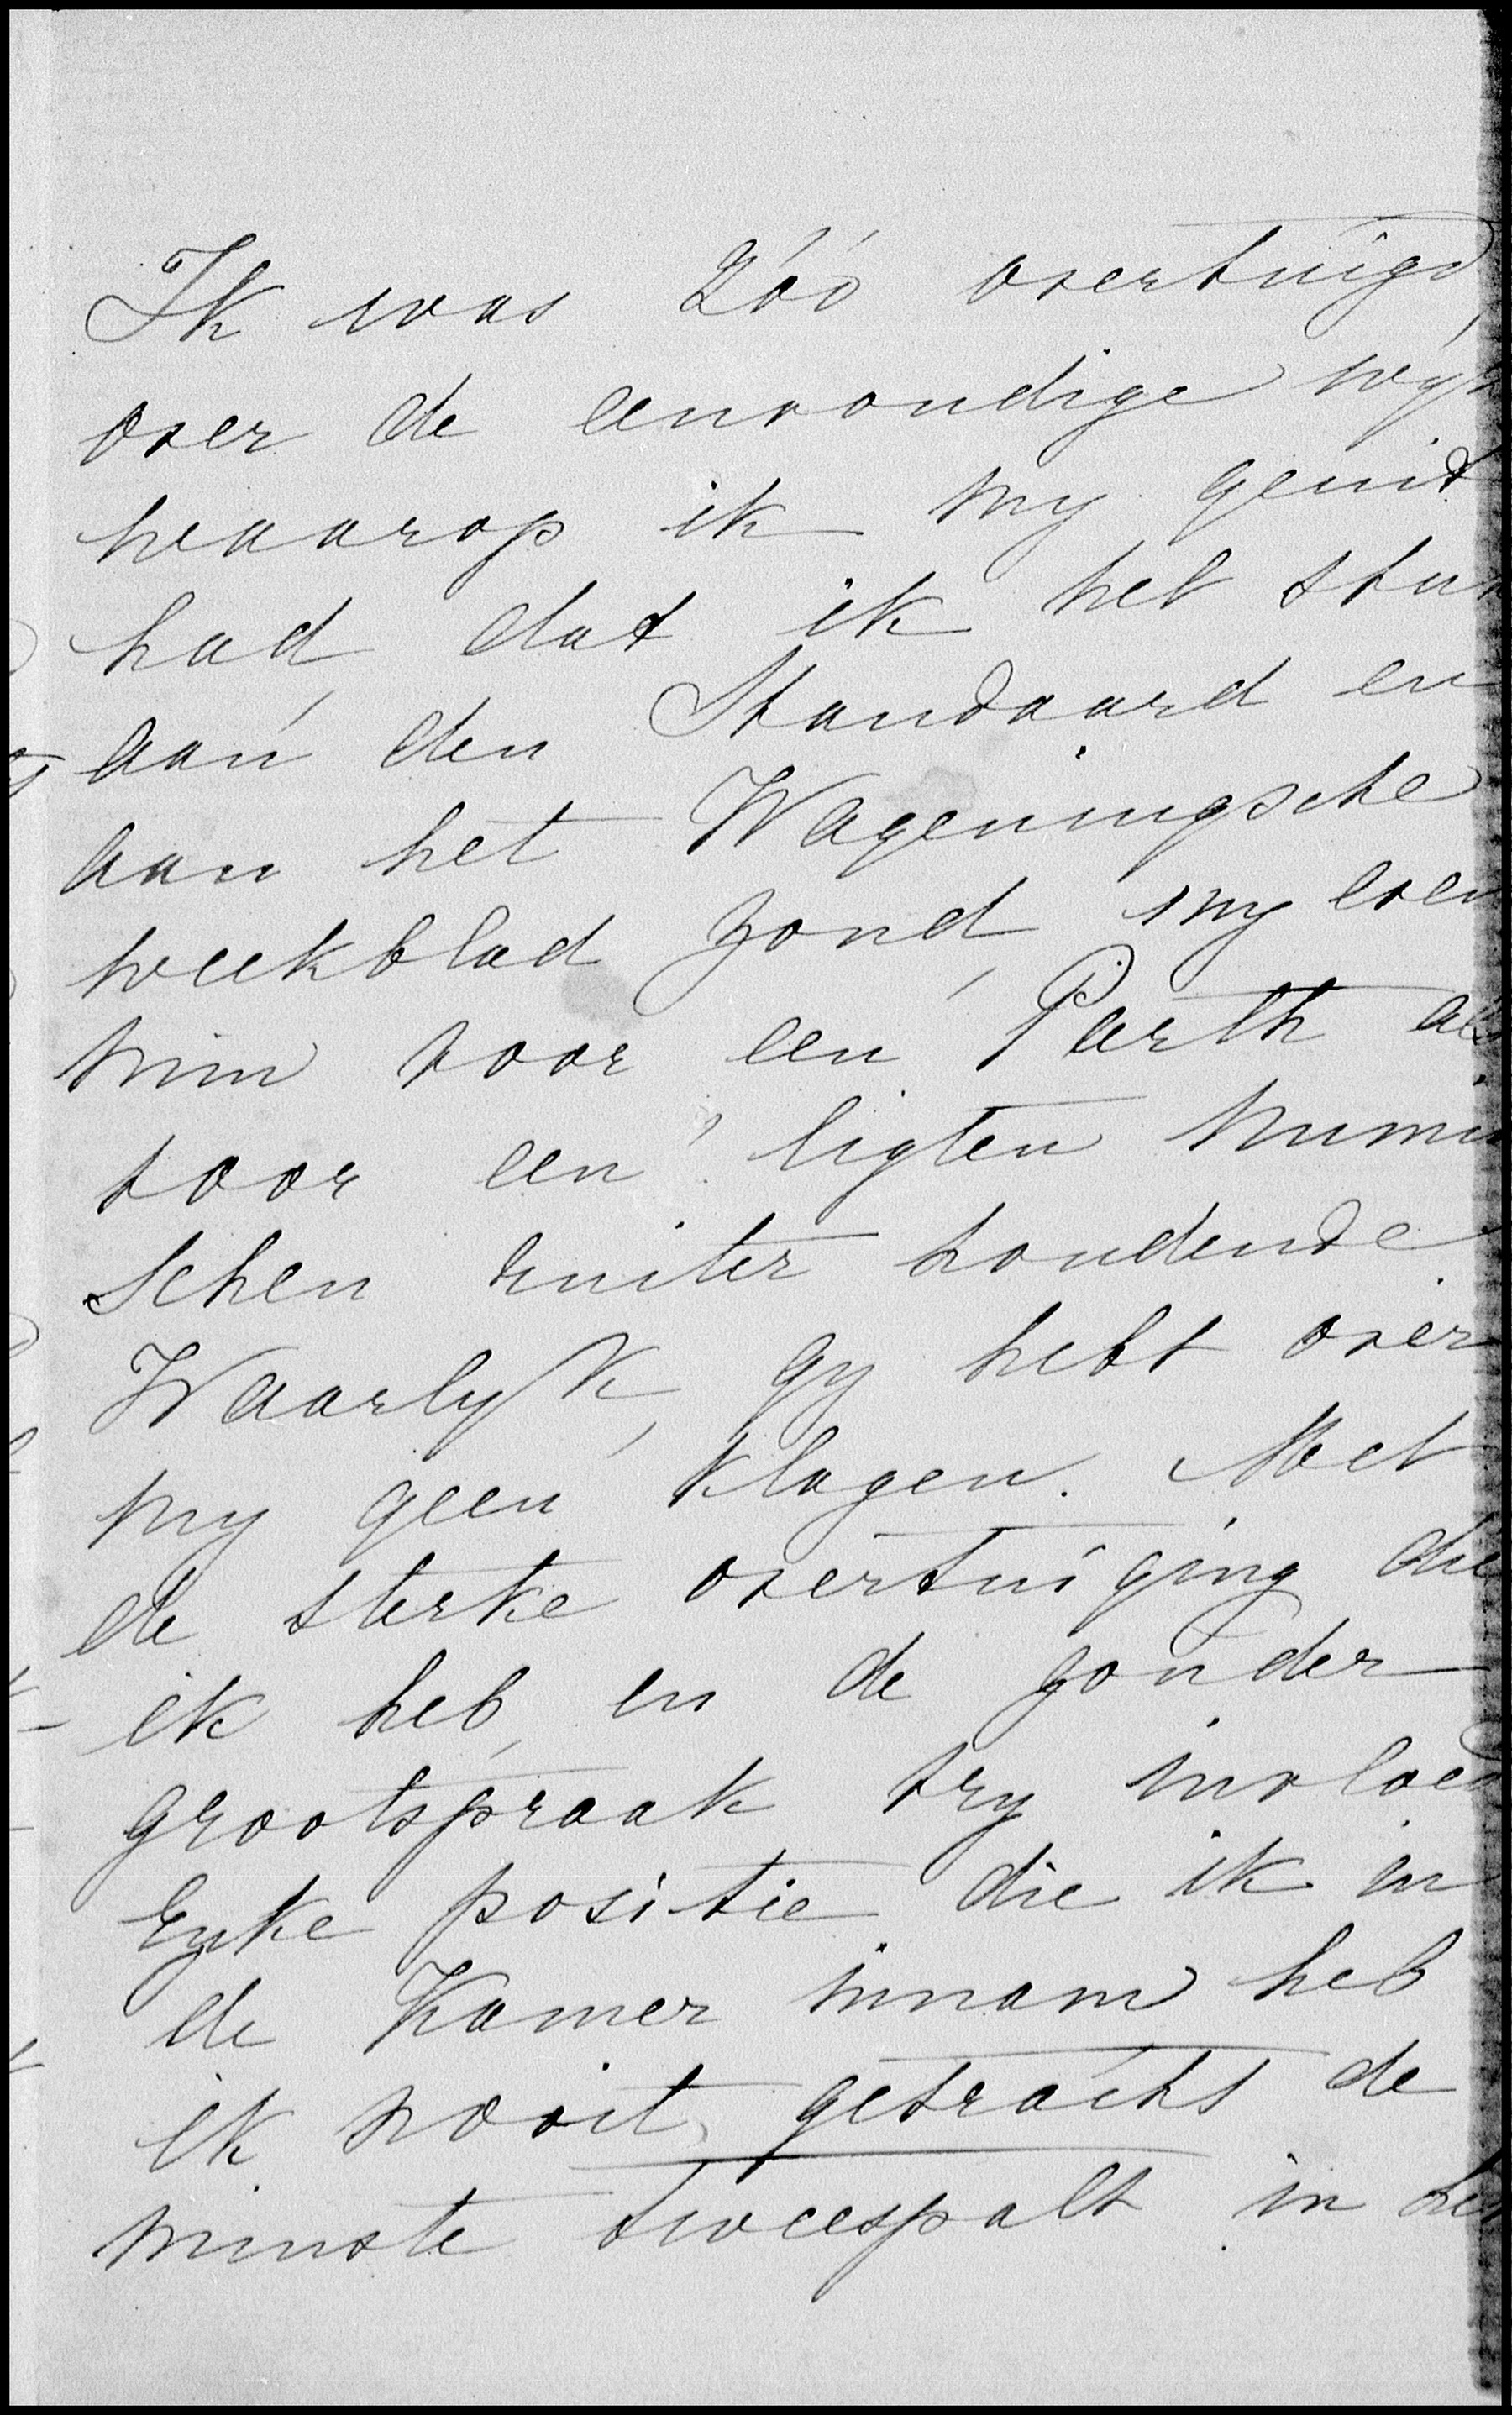 Ik was zóó overtuigd
over de eenvoudige wijze
waarop ik my geuit
had, dat ik het stuk
aan den Standaard en
aan het Wageningsche
weekblad zond, my even
min voor een Parth als
voor een ligten Numidi
schen ruiter houdende
Waarlyk, gy hebt over
my geen klagen. Met
de sterke overtuiging die
ik heb, en de zonder
grootspraak vry invloed
ryke positie die ik in
de Kamer innam heb
ik nooit getracht de
minste tweespalt in het